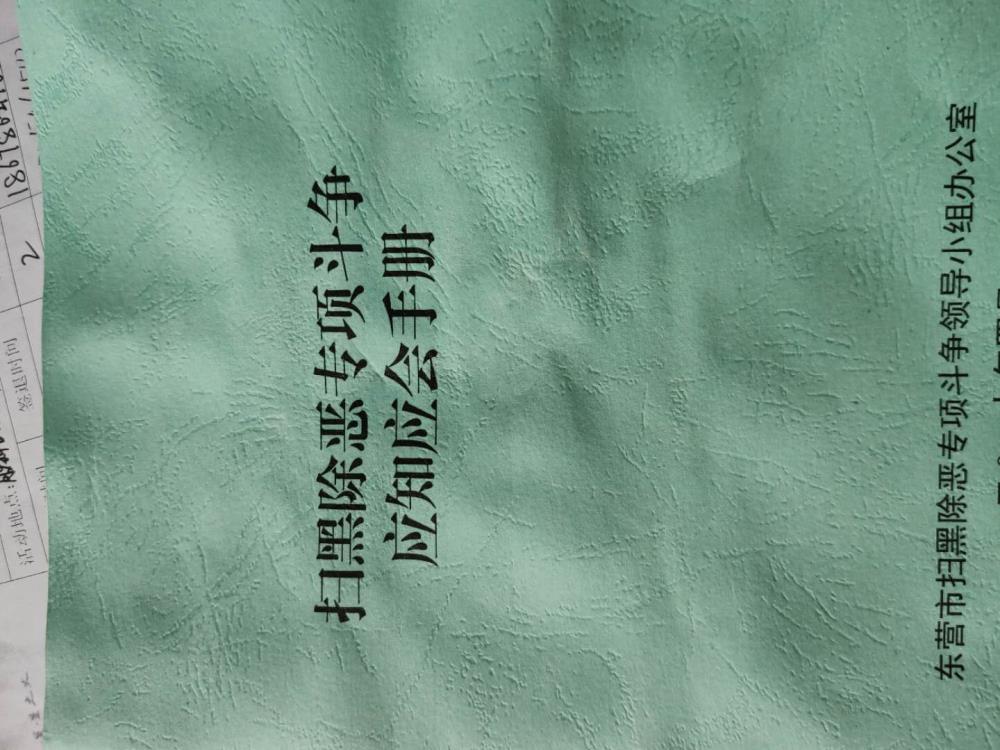 活动地点:
签退时间
2
扫黑除恶专项斗争
应知应会手册
东营市扫黑除恶专项斗争领导小组办公室